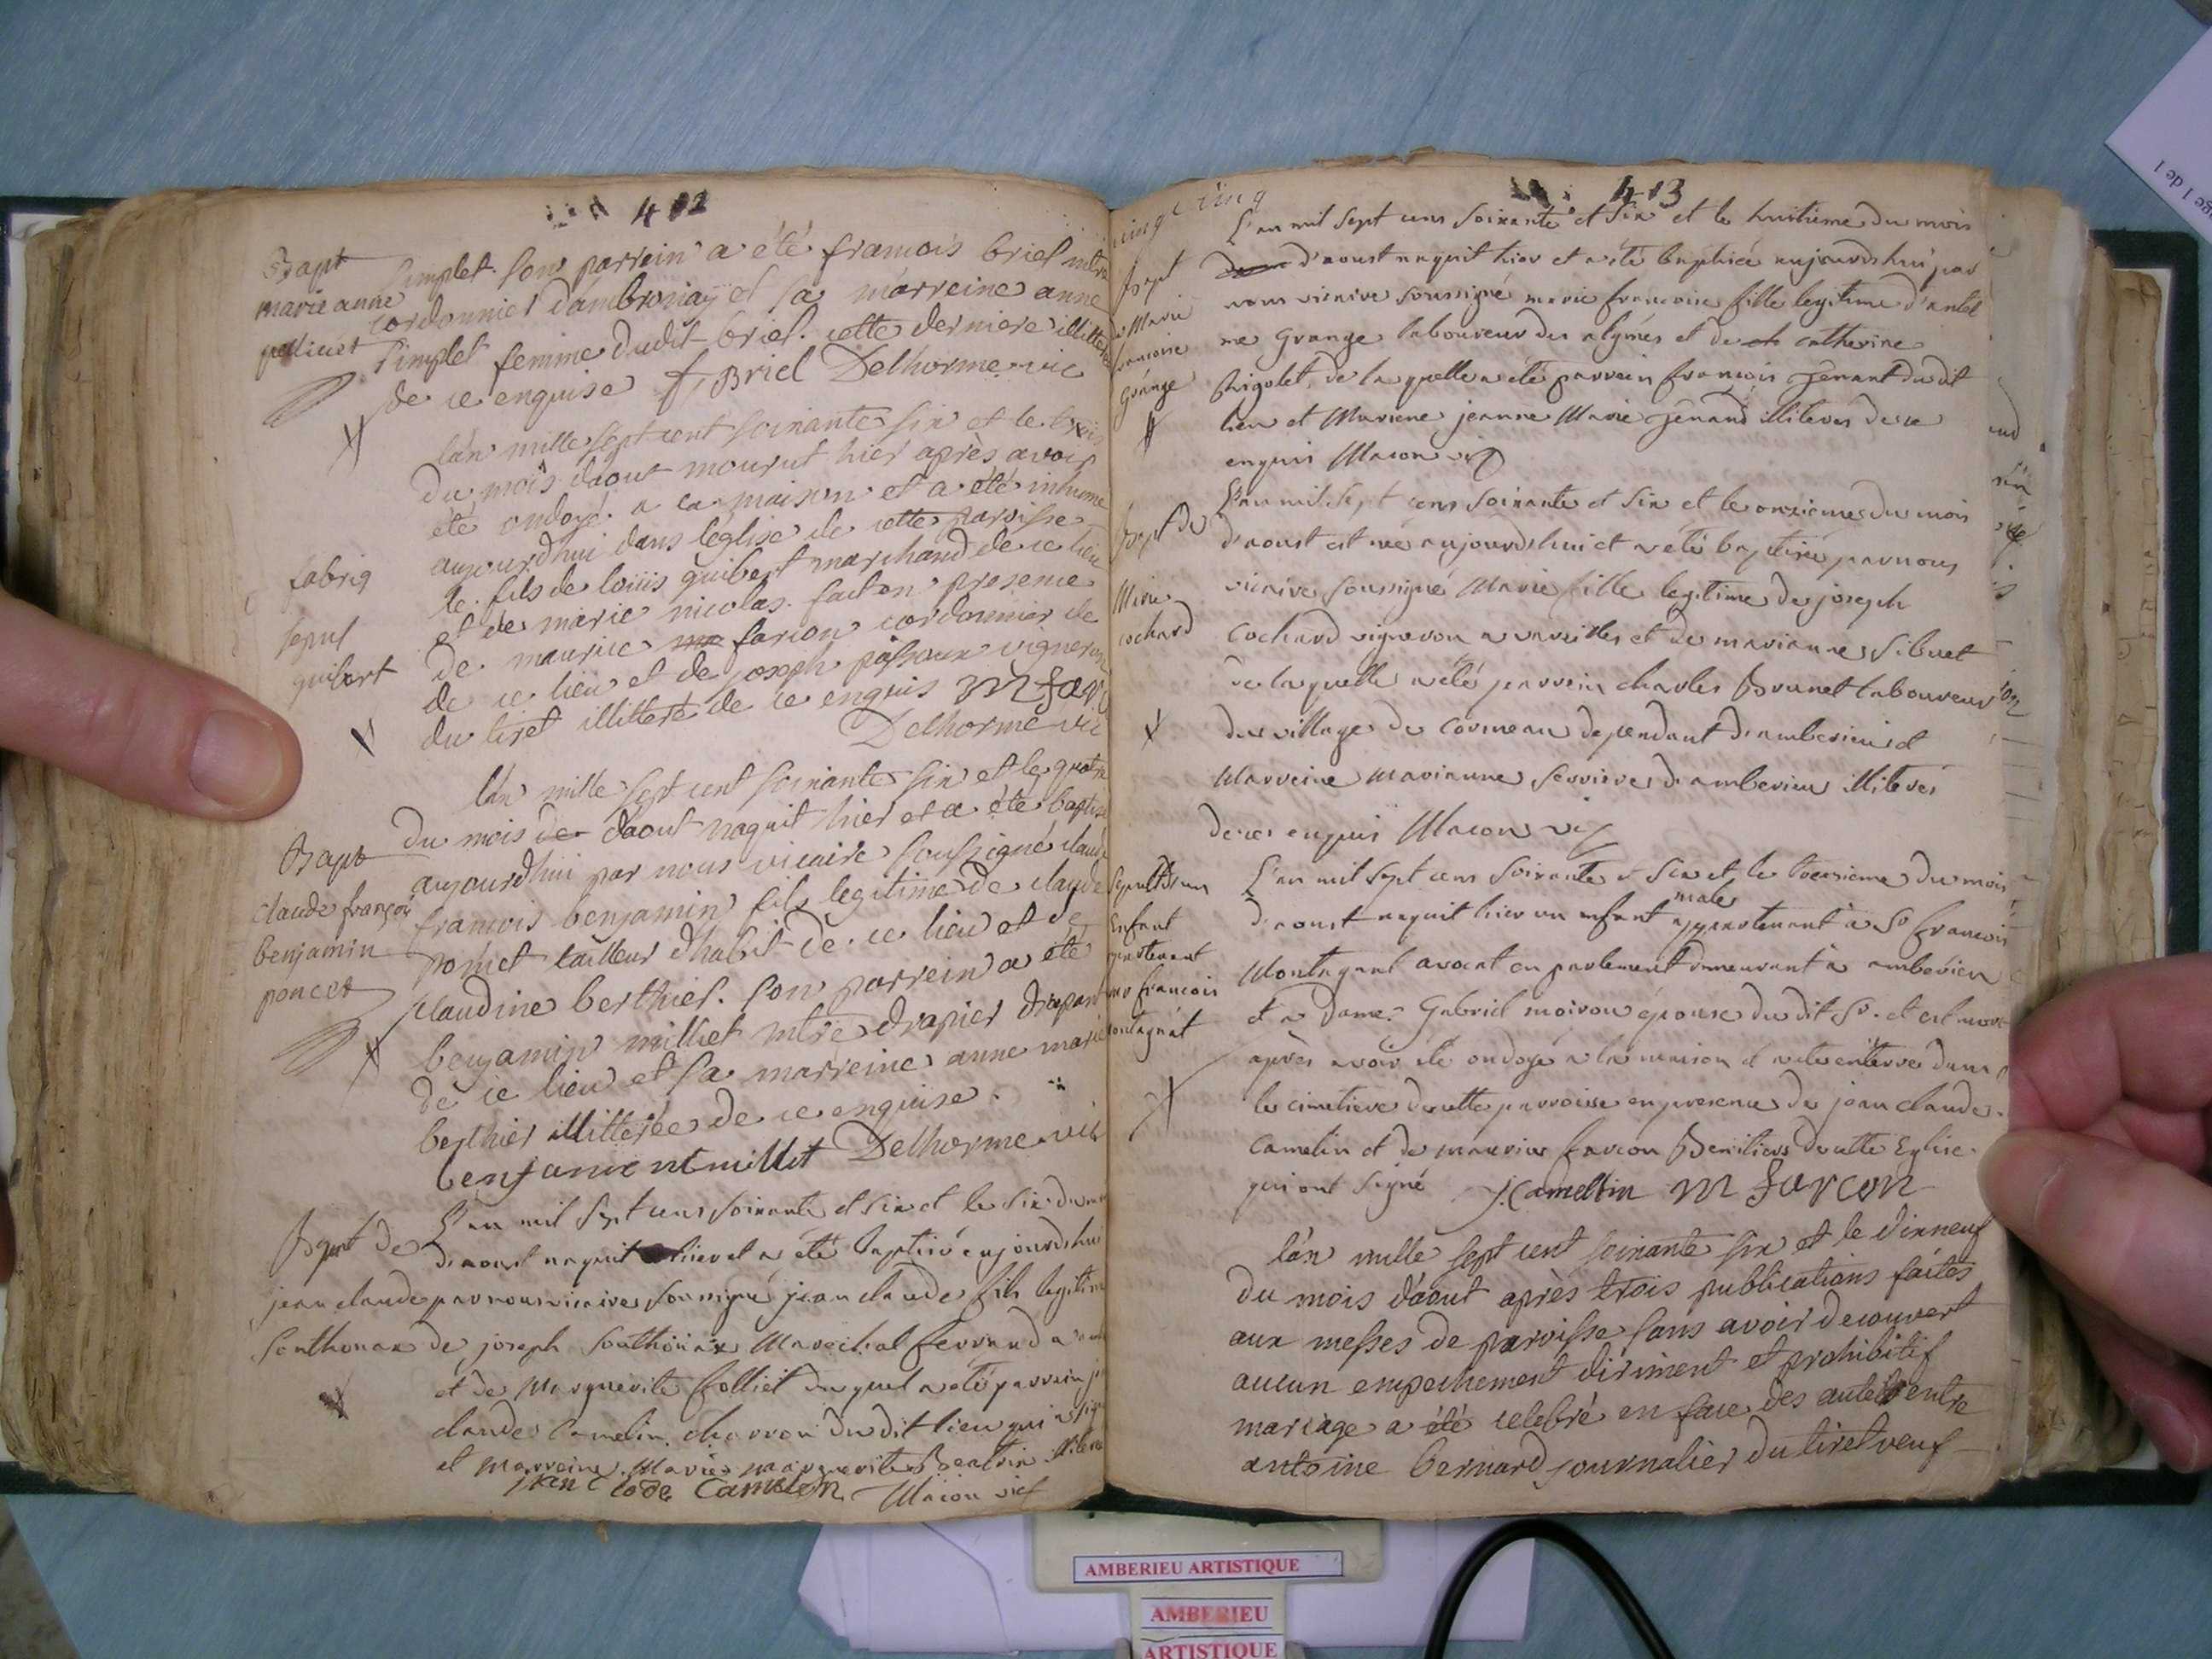 412
Bapt
marie anne
pellicier
simplet. son parrein a été francois briel mtre
cordonnier dambronay et sa marreine anne
simplet femme dudit briel. cette derniere illitterée
de ce enquise f, Briel Delhorme vic
lán mille sept cent soixante six et le trois
du mois daout mourut hier après avoir
été ondoyé a la maison et a été inhumé
aujourdhui dans léglise de cette paroisse
fabriq
sepul
guibert
le fils de loüis guibert marchand de ce lieu
et de marie nicolas. fait en presence
de maurice farcon cordonnier de
de ce lieu et de joseph vigneron
du tiret illitteré de ce enquis M far
Delhorme vic
lán mille sept cent soixante six et le quatre
du mois de daout naquit hier et a été baptisé
Bapt
claude françois
benjamin
poncet
aujourdhui par nous vicaire soussigné claude
francois benjamin fils legitime de claude
poncet tailleur dhabit de ce lieu et de
claudine berthier. son parrein a été
benjamin milliet mtre drapier drapant
de ce lieu et sa marreine anne marie
berthier illitterée de ce enquise.
benjamin milliet Delhorme vic
Bapt de
jean claude
Southonax
L'an mil sept cens soixante et six et le six du mois
d'aoust naquit hier et a été baptisé aujourdshui
par nous vicaire soussigné jean claude fils legitime
de joseph Southonax Marechal ferrand a
et de Marguerite folliet duquel a été parrein
claude Camelin charron du dit lieu qui a signé
et Marreine Marie marguerite Beatrix
jean Clode Camelin Macon vic
413
cinq cinq
Bapt
de Marie
francoise
Grange
L'an mil sept cens soixante et six et le huitieme du mois
d'aoust naquit hier et a été baptisée aujourdshui par
nous vicaire soussigné marie francoise fille legitime d'antel
me Grange laboureur des alymes et de catherine
Rigolet, de laquelle a été parrein françois Jenant du dit
lieu et Mareine jeanne Marie Jenand illiterés de ce
enquis Macon vic
Bapt de
Marie
cochard
L'an mil sept cens soixante et six et le onzieme du mois
d'aoust est née aujourdshui et a été baptisée par nous
vicaire soussigné Marie fille legitime de joseph
Cochard vigneron a vareilles et de marianne Sibuet
de laquelle a été parrein charles Brunet laboureur
du village de Cormeau dependant d'amberieu et
Marreine Marianne d'amberieu illiterés
de ce enquis Macon vic
Sepult d'un
Enfant
apartenant
francois
montagnat
L'an mil sept cens soixante et six et le troisieme du mois
d'aoust naquit hier un enfant male appartenant à Sr francois
Montagnat avocat en parlement demeurant à amberieu
et a Dame Gabriel moiron épouse du dit Sr. et est mort
après avoir été ondoyé a la maison et a été enterré dans
le cimetiere de cette parroisse en presence de jean claude
Camelin et de maurice farcon Beniliers de cette Eglise
qui ont signé J. Camellin M farcon
lán mille sept cent soixante six et le dixneuf
du mois daout après trois publications faites
aux messes de paroisse sans avoir decouvert
aucun empechement diriment et prohibitif
mariage a été celebré en face des autels entre
antoine bernard journalier du tiret veuf
AMBERIEU ARTISTIQUE
AMBERIEU
ARTISTIQUE